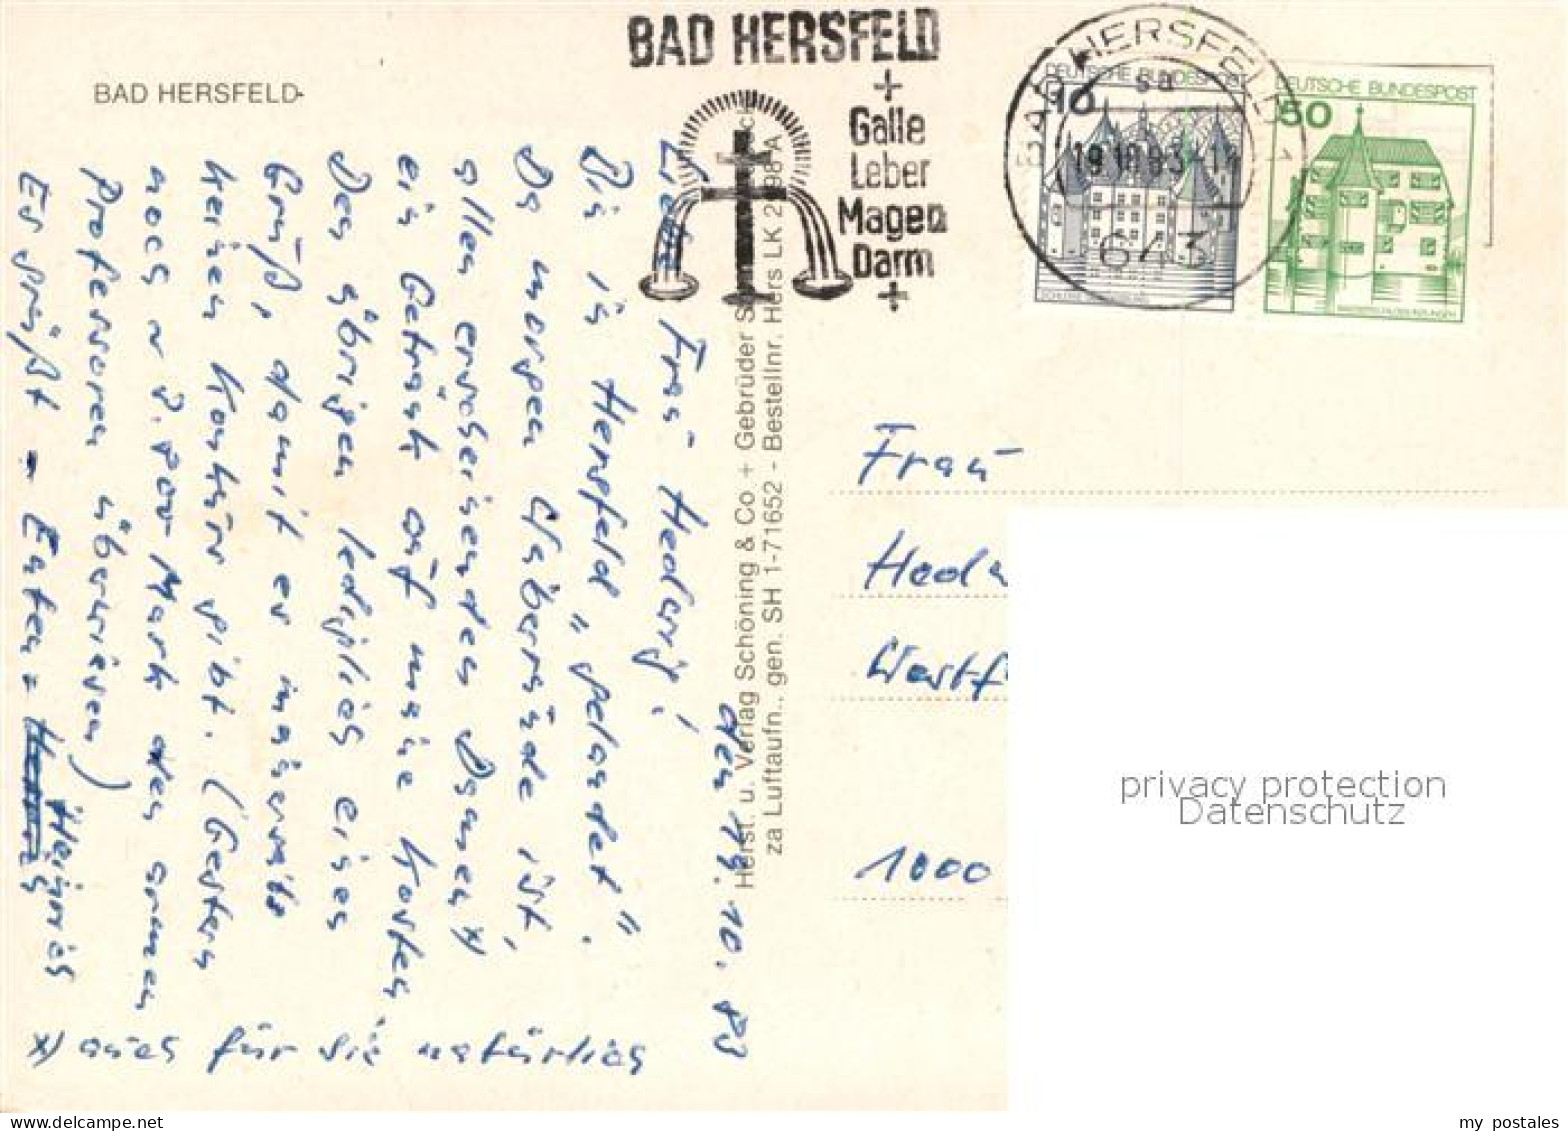 BAD HERSFELD
BAD HERSFELD
+
Galle
Leber
Magen
Darm
+
BAD HERSFELD 1
sa
19.10.83-14
643
DEUTSCHE BUNDESPOST
10
DEUTSCHE BUNDESPOST
50
WASSERSCHLOSS INZLINGEN
den 19.10.83
Liebe Frau Hedwig!
Bin in Hersfeld "gelandet".
Da morgen Urbersünde ist,
allen erscheinenden Damen *)
ein Getränk auf meine Kosten,
Den übrigen lediglich einen
Gruß, damit es innerhalb
keinen Konkurs gibt. (Gestern
noch Mark den armen
Professoren überwiesen)
Es grüßt - Enten = Heinrich
*) auch für Sie natürlich
Herst. u. Verlag Schöning & Co + Gebrüder
za Luftaufn., gen. SH 1-71652 - Bestellnr. Hers LK
Frau
Hedw
Westf
1000
privacy protection
Datenschutz
my postales